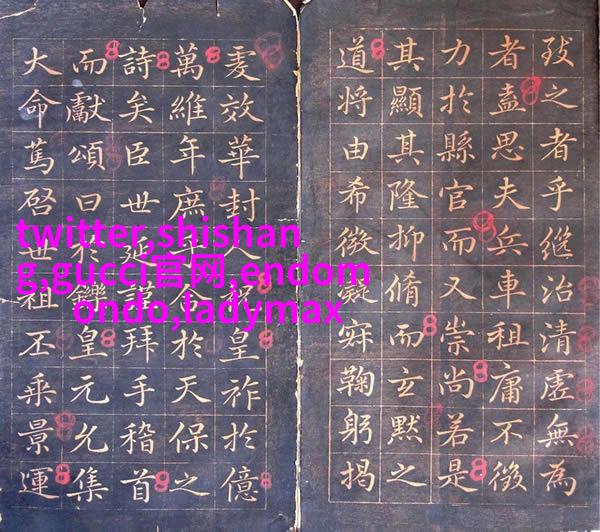 致之者乎継治清虛無為
者盍思夫兵車祖庸不徵
力於縣官而又崇尚若是
其顯其隆抑脩而玄默之
道將由希微凝寂鞠躬揭
虔效華封人祝皇祚於億
萬維年庶於天保之
詩矣臣世延謹拜手稽首
而獻頌曰於鑠皇元允集
大命篤啓世祖丕乘景運
twitter,shishan
g,gucci官网,endom
ondo,ladymax